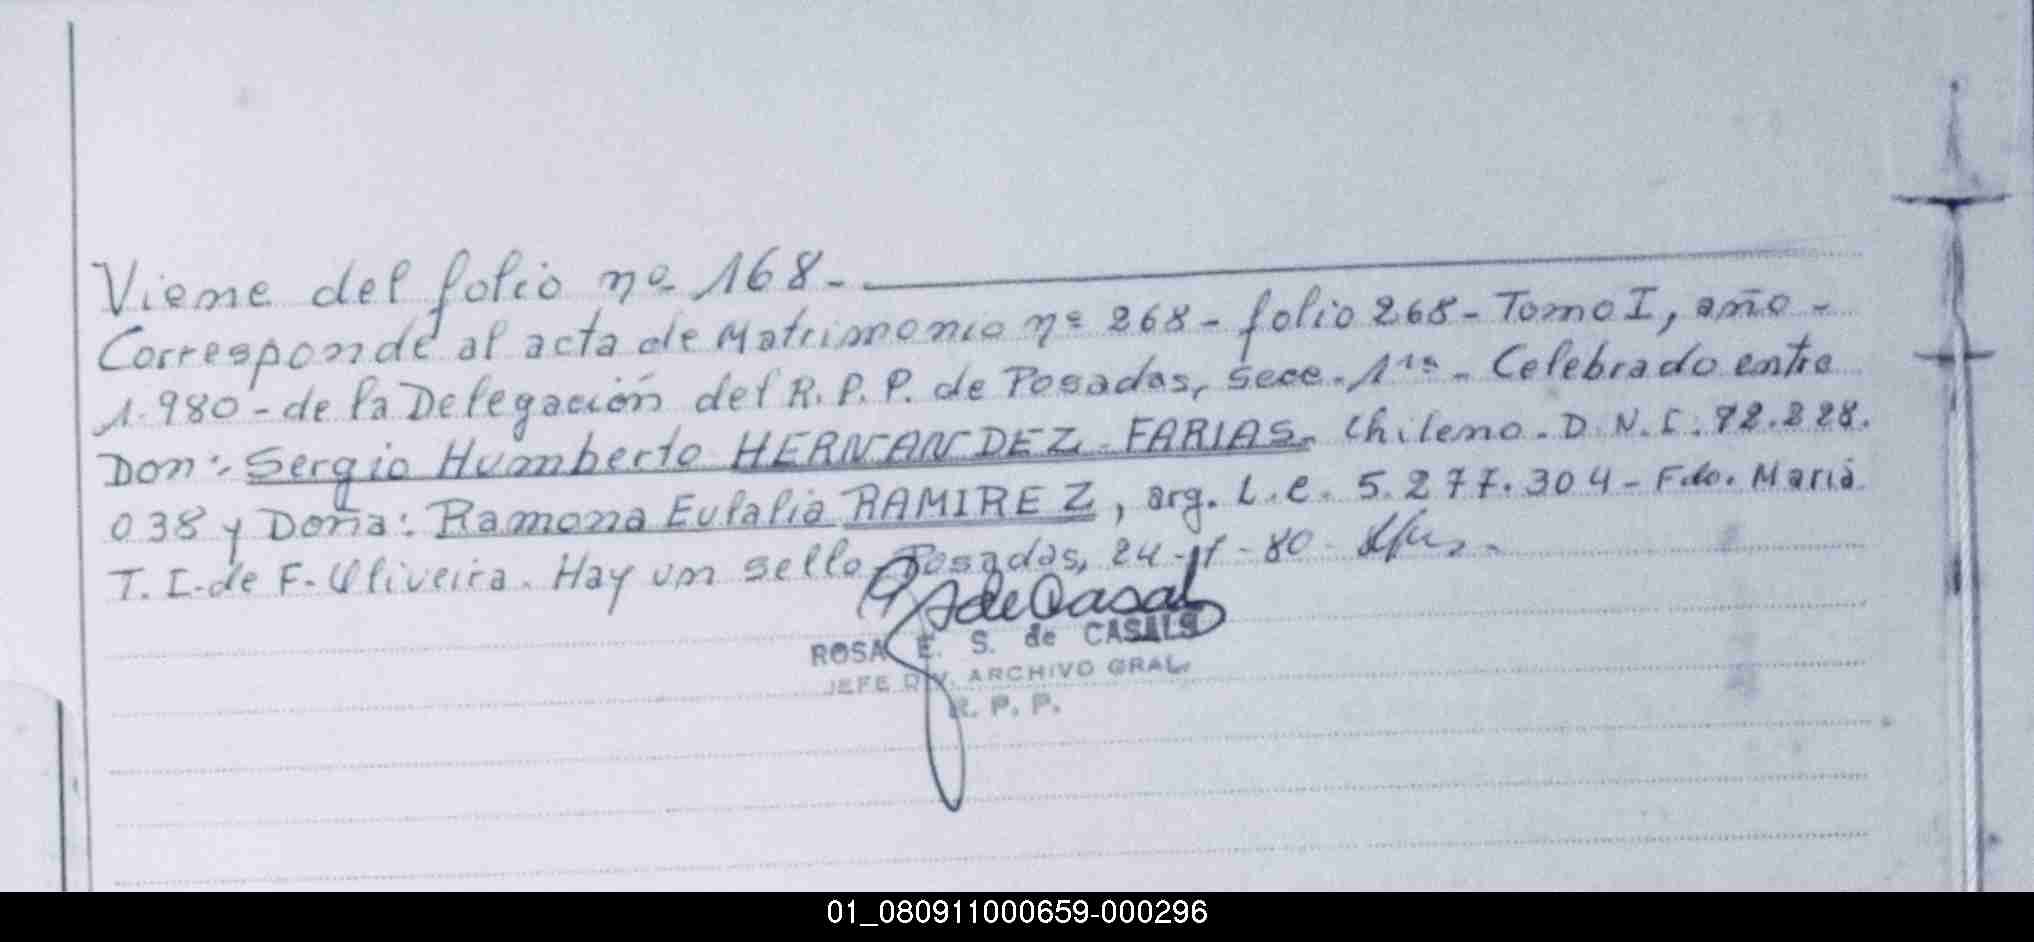 Viene del folio nº 168.-
Corresponde al acta de Matrimonio nº 268 - folio 268 - Tomo I, año -
1.980 - de la Delegación del R.P.P. de Posadas, Secc. 1ra. - Celebrado entre
Don: Sergio Humberto HERNANDEZ FARIAS. Chileno. D.N.I. 92.228.
038 y Doña: Ramona Eulalia RAMIREZ, arg. L.C. 5.277.304 - Fdo. Maria
T. I. de F. Oliveira. Hay un sello. Posadas, 24-11-80.
de Casals
ROSA E. S. de CASALS
JEFE DIV. ARCHIVO GRAL.
R. P. P.
01_080911000659-000296